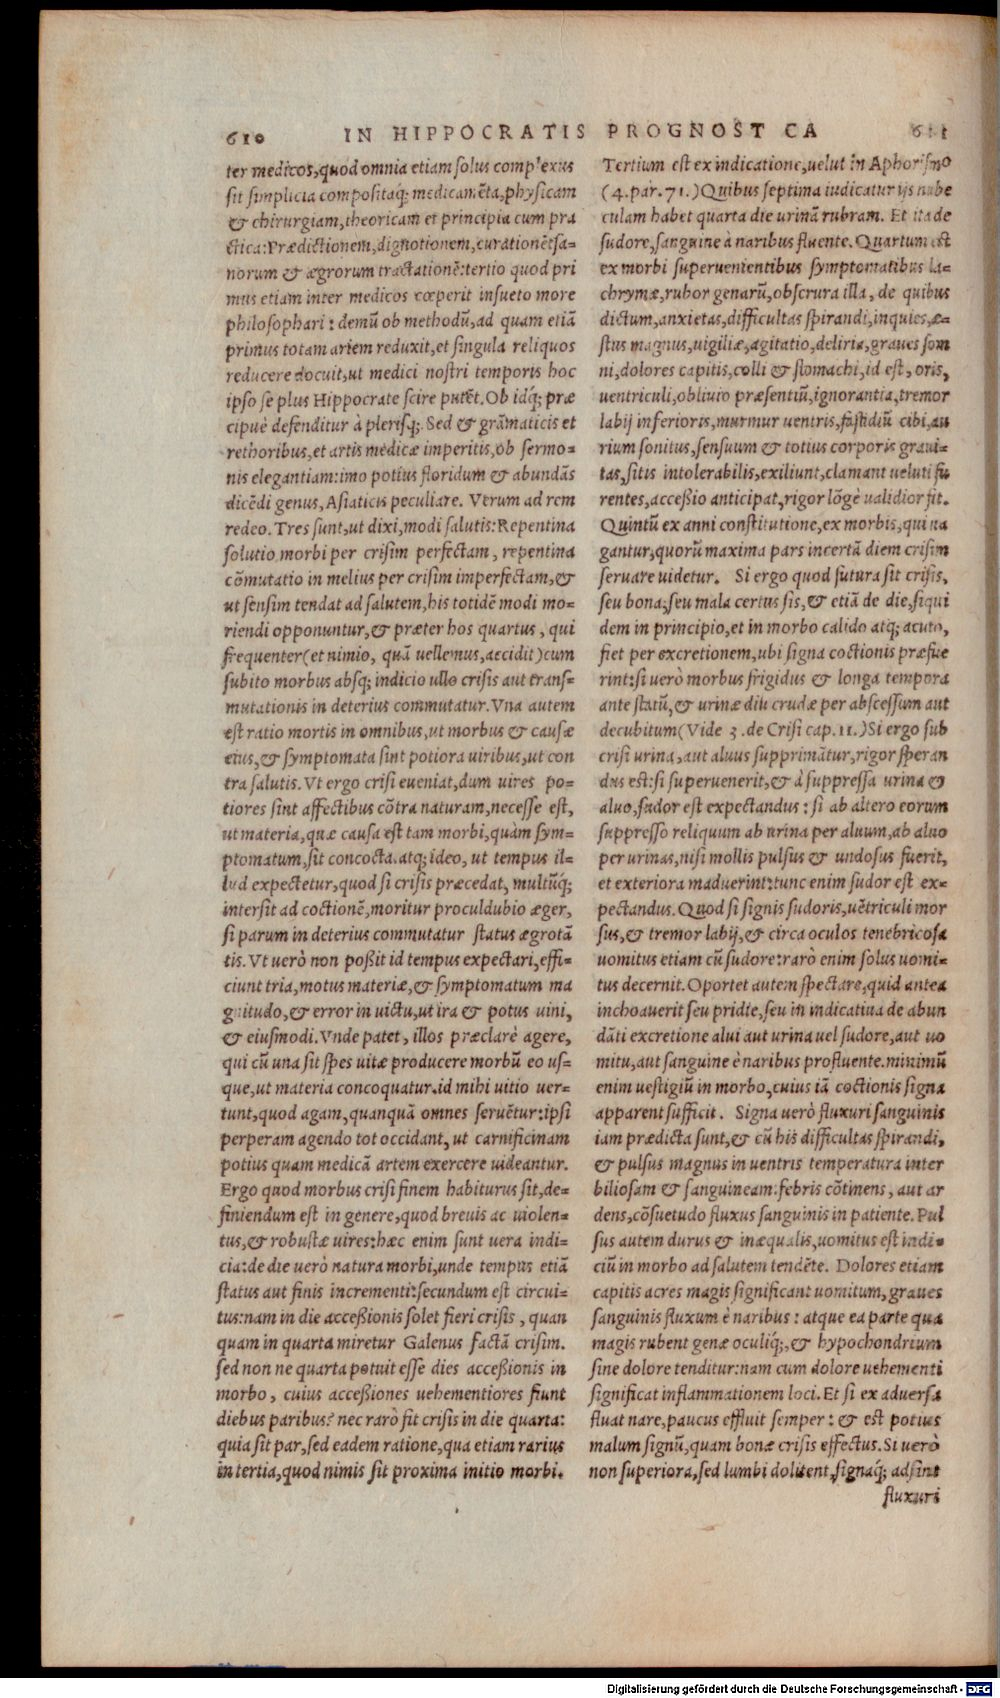 610 IN HIPPOCRATIS PROGNOST CA 611
ter medicos, quod omnia etiam solus complexus
sit simplicia compositaq́; medicamēta, physicam
& chirurgiam, theoricam et principia cum pra
ctica: Prædictionem, dignotionem, curationēq́; sa=
norum & ægrorum tractationē: tertio quod pri
mus etiam inter medicos cœperit insueto more
philosophari: demū ob methodū, ad quam etiā
primus totam artem reduxit, et singula reliquos
reducere docuit, ut medici nostri temporis hoc
ipso se plus Hippocrate scire putēt. Ob idq́; præ
cipuè defenditur à plerisq́;. Sed & grāmaticis et
rethoribus, et artis medicæ imperitis, ob sermo=
nis elegantiam: imo potius floridum & abundās
dicēdi genus, Asiaticis peculiare. Verum ad rem
redeo. Tres sunt, ut dixi, modi salutis: Repentina
solutio morbi per crisim perfectam, repentina
cōmutatio in melius per crisim imperfectam, &
ut sensim tendat ad salutem, his totidē modi mo=
riendi opponuntur, & præter hos quartus, qui
frequenter (et nimio, quā uellemus, accidit) cum
subito morbus absq; indicio ullo crisis aut trans=
mutationis in deterius commutatur. Vna autem
est ratio mortis in omnibus, ut morbus & causæ
eius, & symptomata sint potiora uiribus, ut con
tra salutis. Vt ergo crisi eueniat, dum uires po=
tiores sint affectibus cōtra naturam, necesse est,
ut materia, quæ causa est tam morbi, quàm sym=
ptomatum, sit concocta. atq; ideo, ut tempus il=
lud expectetur, quod si crisis præcedat, multūq́;
intersit ad coctionē, moritur proculdubio æger,
si parum in deterius commutatur status ægrotā
tis. Vt uerò non poßit id tempus expectari, effi=
ciunt tria, motus materiæ, & symptomatum ma
gnitudo, & error in uictu, ut ira & potus uini,
& eiusmodi. Vnde patet, illos præclarè agere,
qui cū una sit spes uitæ producere morbū eo us=
que, ut materia concoquatur. id mihi uitio uer=
tunt, quod agam, quanquā omnes seruētur: ipsi
perperam agendo tot occidant, ut carnificinam
potius quam medicā artem exercere uideantur.
Ergo quod morbus crisi finem habiturus sit, de=
finiendum est in genere, quod breuis ac uiolen=
tus, & robustæ uires: hæc enim sunt uera indi=
cia: de die uerò natura morbi, unde tempus etiā
status aut finis incrementi: secundum est circui=
tus: nam in die acceßionis solet fieri crisis, quan
quam in quarta miretur Galenus factā crisim.
sed non ne quarta potuit esse dies acceßionis in
morbo, cuius acceßiones uehementiores fiunt
diebus paribus? nec rarò fit crisis in die quarta:
quia sit par, sed eadem ratione, qua etiam rarius
in tertia, quod nimis sit proxima initio morbi.
Tertium est ex indicatione, uelut in Aphorismo
(4. par. 71.) Quibus septima iudicatur ijs nube
culam habet quarta die urinā rubram. Et ita de
sudore, sanguine à naribus fluente. Quartum est
ex morbi superuenientibus symptomatibus la=
chrymæ, rubor genarū, obscura illa, de quibus
dictum, anxietas, difficultas spirandi, inquies, æ=
stus magnus, uigiliæ, agitatio, deliria, graues som
ni, dolores capitis, colli & stomachi, id est, oris,
uentriculi, obliuio præsentiū, ignorantia, tremor
labij inferioris, murmur uentris, fastidiū cibi, au
rium sonitus, sensuum & totius corporis graui=
tas, sitis intolerabilis, exiliunt, clamant ueluti fu
rentes, acceßio anticipat, rigor lōgè ualidior fit.
Quintū ex anni constitutione, ex morbis, qui ua
gantur, quorū maxima pars incertā diem crisim
seruare uidetur. Si ergo quod futura sit crisis,
seu bona, seu mala certus sis, & etiā de die, siqui
dem in principio, et in morbo calido atq; acuto,
fiet per excretionem, ubi signa coctionis præfue
rint: si uerò morbus frigidus & longa tempora
ante statū, & urinæ diu crudæ per abscessum aut
decubitum (Vide 3. de Crisi cap. 11.) Si ergo sub
crisi urina, aut aluus supprimātur, rigor speran
dus est: si superuenerit, & à suppressa urina &
aluo, sudor est expectandus: si ab altero eorum
suppresso reliquum ab urina per aluum, ab aluo
per urinas, nisi mollis pulsus & undosus fuerit,
et exteriora maduerint: tunc enim sudor est ex=
pectandus. Quod si signis sudoris, uētriculi mor
sus, & tremor labij, & circa oculos tenebricosa
uomitus etiam cū sudore: rarò enim solus uomi=
tus decernit. Oportet autem spectare, quid antea
inchoauerit seu pridie, seu in indicatiua de abun
dāti excretione alui aut urina uel sudore, aut uo
mitu, aut sanguine è naribus profluente. minimū
enim uestigiū in morbo, cuius iā coctionis signa
apparent sufficit. Signa uerò fluxuri sanguinis
iam prædicta sunt, & cū his difficultas spirandi,
& pulsus magnus in uentris temperatura inter
biliosam & sanguineam: febris cōtinens, aut ar
dens, cōsuetudo fluxus sanguinis in patiente. Pul
sus autem durus & inæqualis, uomitus est indi=
ciū in morbo ad salutem tendēte. Dolores etiam
capitis acres magis significant uomitum, graues
sanguinis fluxum è naribus: atque ea parte qua
magis rubent genæ oculiq́;, & hypochondrium
sine dolore tenditur: nam cum dolore uehementi
significat inflammationem loci. Et si ex aduersa
fluat nare, paucus effluit semper: & est potius
malum signū, quam bonæ crisis effectus. Si uerò
non superiora, sed lumbi dolitent, signaq́; adsint
fluxuri
Digitalisierung gefördert durch die Deutsche Forschungsgemeinschaft - DFG